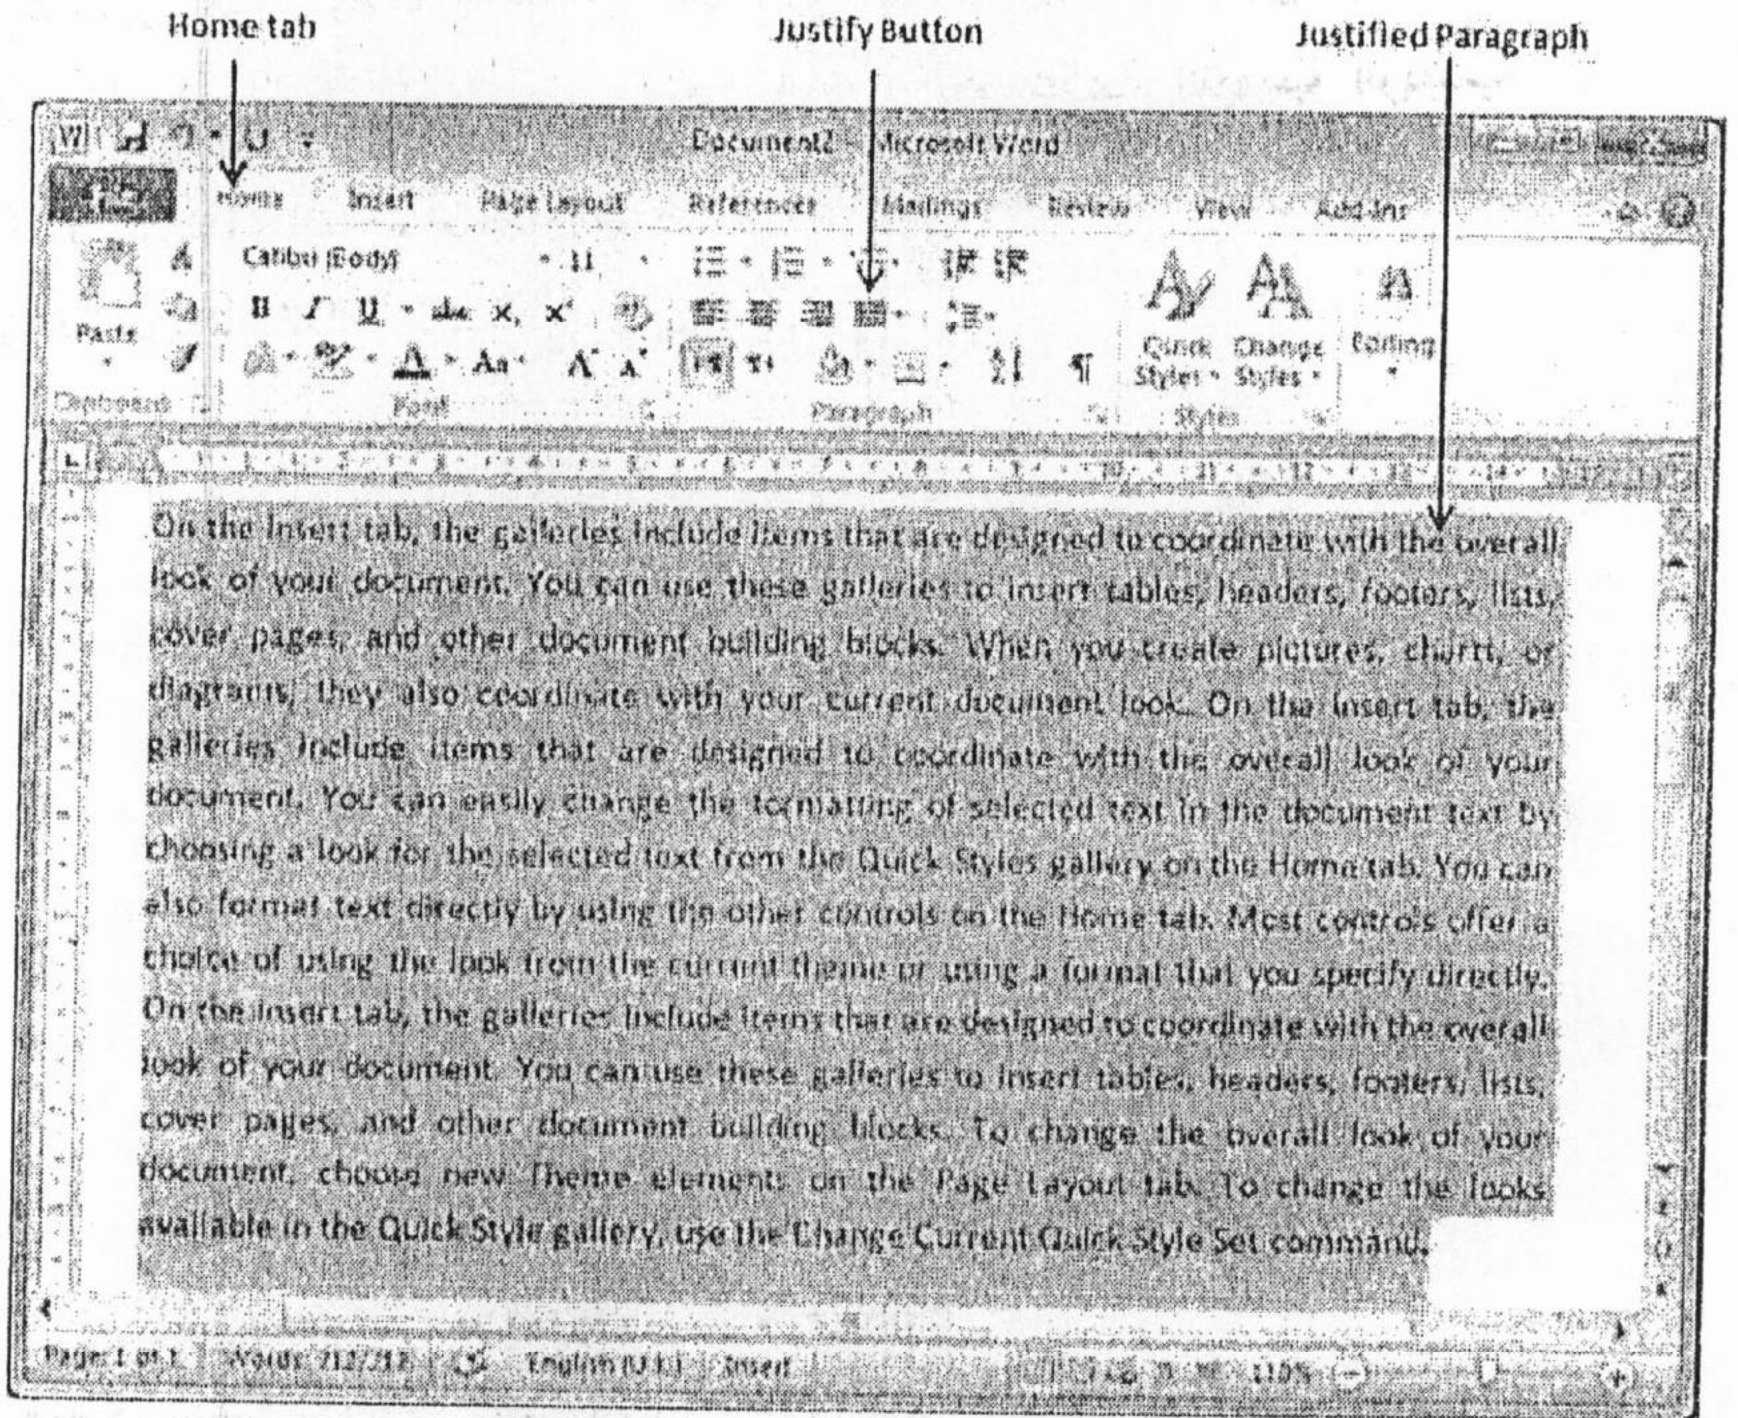 Home tab
Justify Button
Justified Paragraph
W
Document2 - Microsoft Word
Home Insert Page Layout References Mailings Review View Add-Ins
Calibri (Body) 11
B I U abc x, x
Paste
Aa A A
Quick Styles
Change Styles
Editing
Clipboard Font Paragraph Styles
L
On the Insert tab, the galleries include items that are designed to coordinate with the overall
look of your document. You can use these galleries to insert tables, headers, footers, lists,
cover pages, and other document building blocks. When you create pictures, charts, or
diagrams, they also coordinate with your current document look. On the Insert tab, the
galleries include items that are designed to coordinate with the overall look of your
document. You can easily change the formatting of selected text in the document text by
choosing a look for the selected text from the Quick Styles gallery on the Home tab. You can
also format text directly by using the other controls on the Home tab. Most controls offer a
choice of using the look from the current theme or using a format that you specify directly.
On the Insert tab, the galleries include items that are designed to coordinate with the overall
look of your document. You can use these galleries to insert tables, headers, footers, lists,
cover pages, and other document building blocks. To change the overall look of your
document, choose new Theme elements on the Page Layout tab. To change the looks
available in the Quick Style gallery, use the Change Current Quick Style Set command.
Page: 1 of 1 Words: 212/212 English (U.K.) Insert 110%